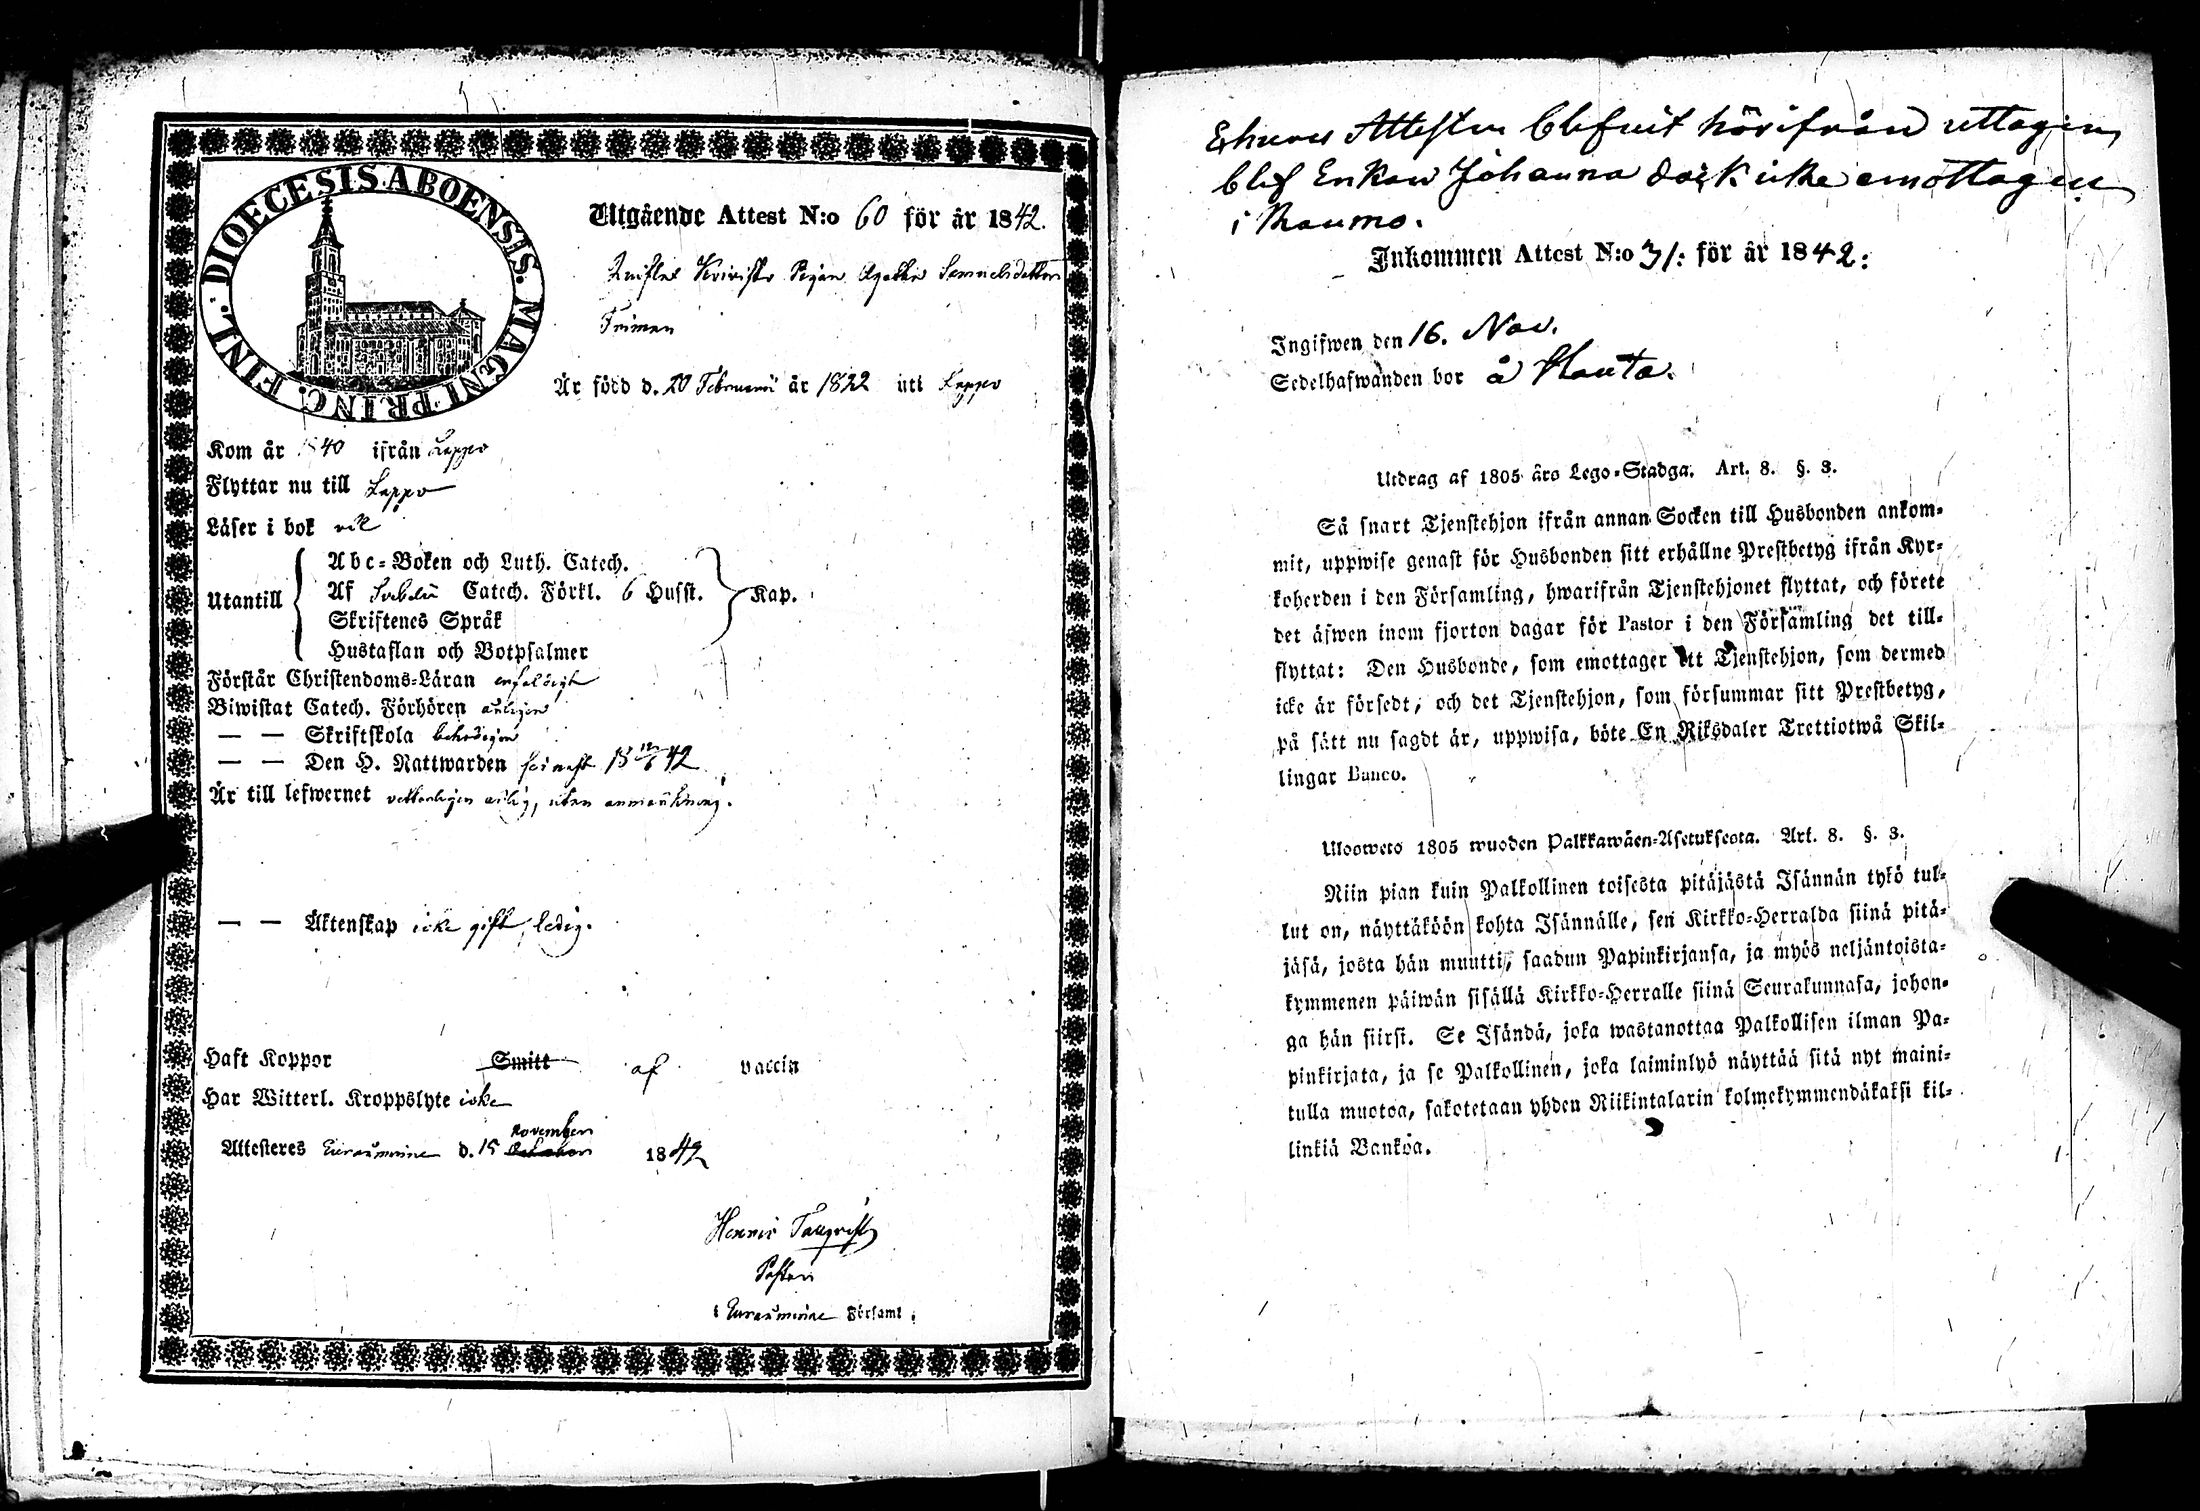 DIOECESIS ABOENSIS. MAGNI PRINC. FINL.
Utgående Attest N:o 60 för år 1842.
Pigan Agatha Samuelsdotter
Är född d. 20 Februarii år 1822 uti Lappo
Kom år 1840 ifrån Lappo
Flyttar nu till Lappo
Läser i bok
Utantill
Abc-Boken och Luth. Catech.
Af Catech. Förkl. 6 Husst. Kap.
Skriftenes Språk
Hustaflan och Botpsalmer
Förstår Christendoms-Läran enfaldigt
Biwistat Catech. Förhören årligen
— — Skriftskola behörigen
— — Den H. Nattwarden senast 42
Är till lefwernet wetterligen ärlig, utan anmärkning.
— — Äktenskap icke gift, ledig.
Haft Koppor Smitt af vaccin
Har Witterl. Kroppslyte icke
November
Attesteres Euraåminne d. 15 October 1842
Henric Tallqvist
Pastor
i Euraåminne Församl.
Ehuru Attesten blefvit härifrån uttagen,
blef Enkan Johanna dock icke emottagen
i Raumo.
Inkommen Attest N:o 31: för år 1842:
Ingifwen den 16. Nov.
Sedelhafwanden bor å
Utdrag af 1805 års Lego-Stadga. Art. 8. §. 3.
Så snart Tjenstehjon ifrån annan Socken till Husbonden ankom-
mit, uppwise genast för Husbonden sitt erhållne Prestbetyg ifrån Kyr-
koherden i den Församling, hwarifrån Tjenstehjonet flyttat, och förete
det äfwen inom fjorton dagar för Pastor i den Församling det till-
flyttat: Den Husbonde, som emottager ett Tjenstehjon, som dermed
icke är försedt, och det Tjenstehjon, som försummar sitt Prestbetyg,
på sätt nu sagdt är, uppwisa, böte En Riksdaler Trettiotwå Skil-
lingar Banco.
Uloswets 1805 wuoden Palkkawäen-Asetuksesta. Art. 8. §. 3.
Niin pian kuin Palkollinen toisesta pitäjästä Isännän tykö tul-
lut on, näyttäköön kohta Isännälle, sen Kirkko-Herralda siinä pitä-
jäsä, josta hän muutti, saadun Papinkirjansa, ja myös neljäntoista-
kymmenen päiwän sisällä Kirkko-Herralle siinä Seurakunnasa, johon-
ga hän siirsi. Se Isändä, joka wastanottaa Palkollisen ilman Pa-
pinkirjata, ja se Palkollinen, joka laiminlyö näyttää sitä nyt maini-
tulla muotoa, sakotetaan yhden Riikintalarin kolmekymmendäkaksi kil-
linkiä Bankoa.